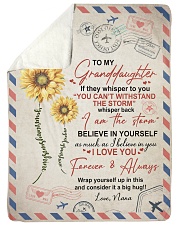 TO MY
Granddaughter
If they whisper to you
"YOU CAN'T WITHSTAND
THE STORM"
whisper back
I am the storm
BELIEVE IN YOURSELF
as much as I believe in you
I LOVE YOU
Forever & Always
Wrap yourself up in this
and consider it a big hug!!
Love, Nana